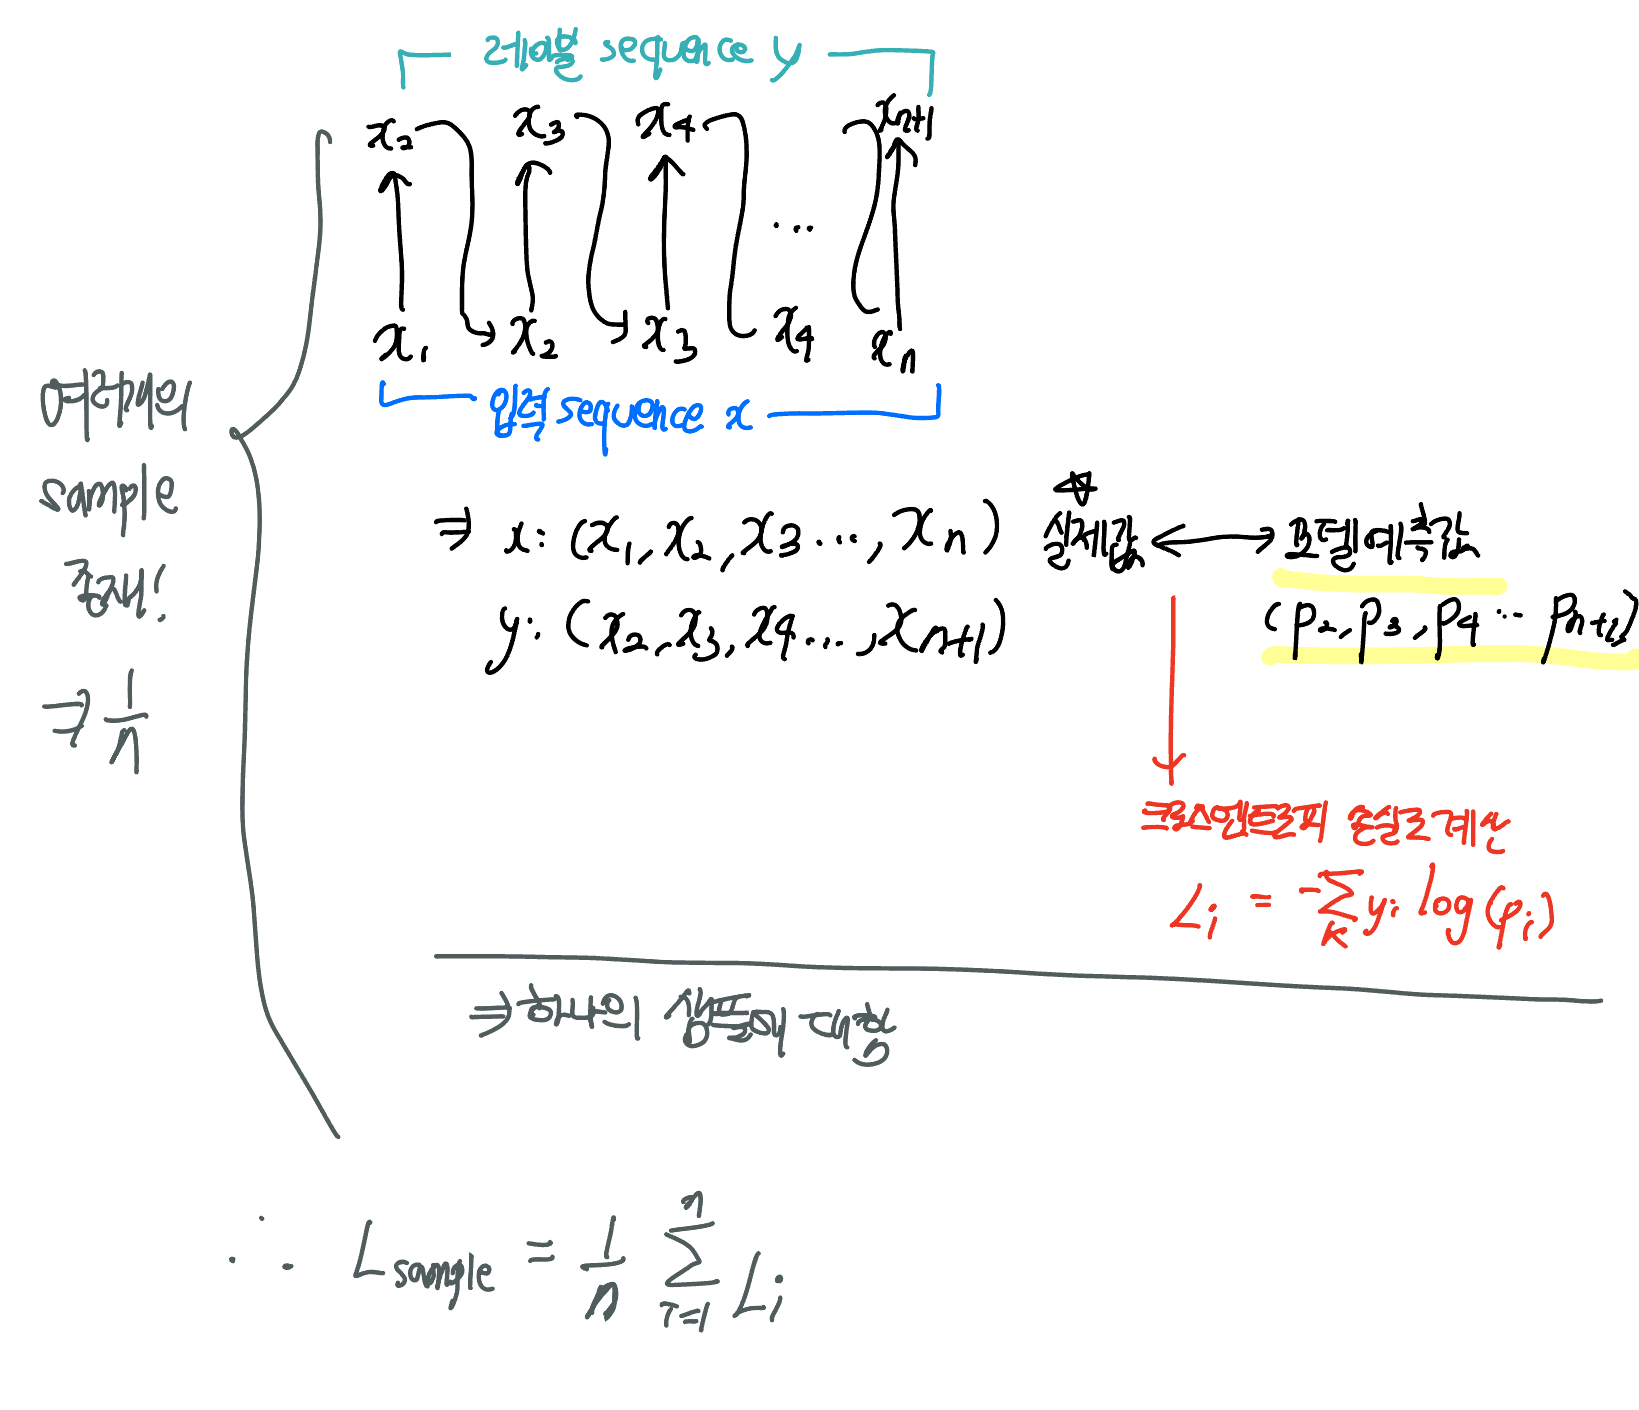 레이블 sequence y
x₂ x₃ x₄ xₙ₊₁
...
x₁ x₂ x₃ x₄ xₙ
입력 sequence x
여러개의
sample
존재!
⇒ 1/n
⇒ x: (x₁, x₂, x₃ ..., xₙ) 실제값 ↔ 모델예측값
y: (x₂, x₃, x₄ ..., xₙ₊₁) (p₂, p₃, p₄ ... pₙ₊₁)
크로스엔트로피 손실로 계산
Lᵢ = -∑ₖ yᵢ log(pᵢ)
⇒ 하나의 샘플에 대함
∴ L_sample = 1/n ∑ⁿᵢ₌₁ Lᵢ